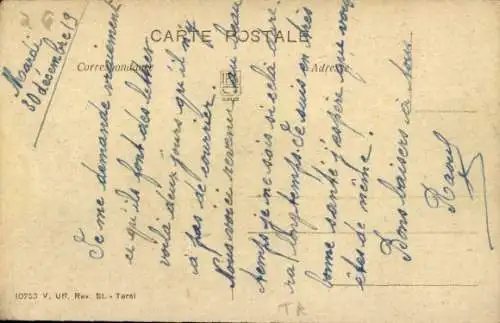 CARTE POSTALE
Correspondance
Adresse
Mardi
30 décembre 19
Je me demande vraiment
ce qu'ils font des lettres
voilà deux jours qu'il n'y
a pas de courrier.
Nous voici revenu au beau
temps je ne sais si celà dure-
ra longtemps. Je suis en très
bonne santé j'espère que vous
êtes de même.
Bons baisers à tous
Raoul
10753 V. Uff. Rev. St. - Terni